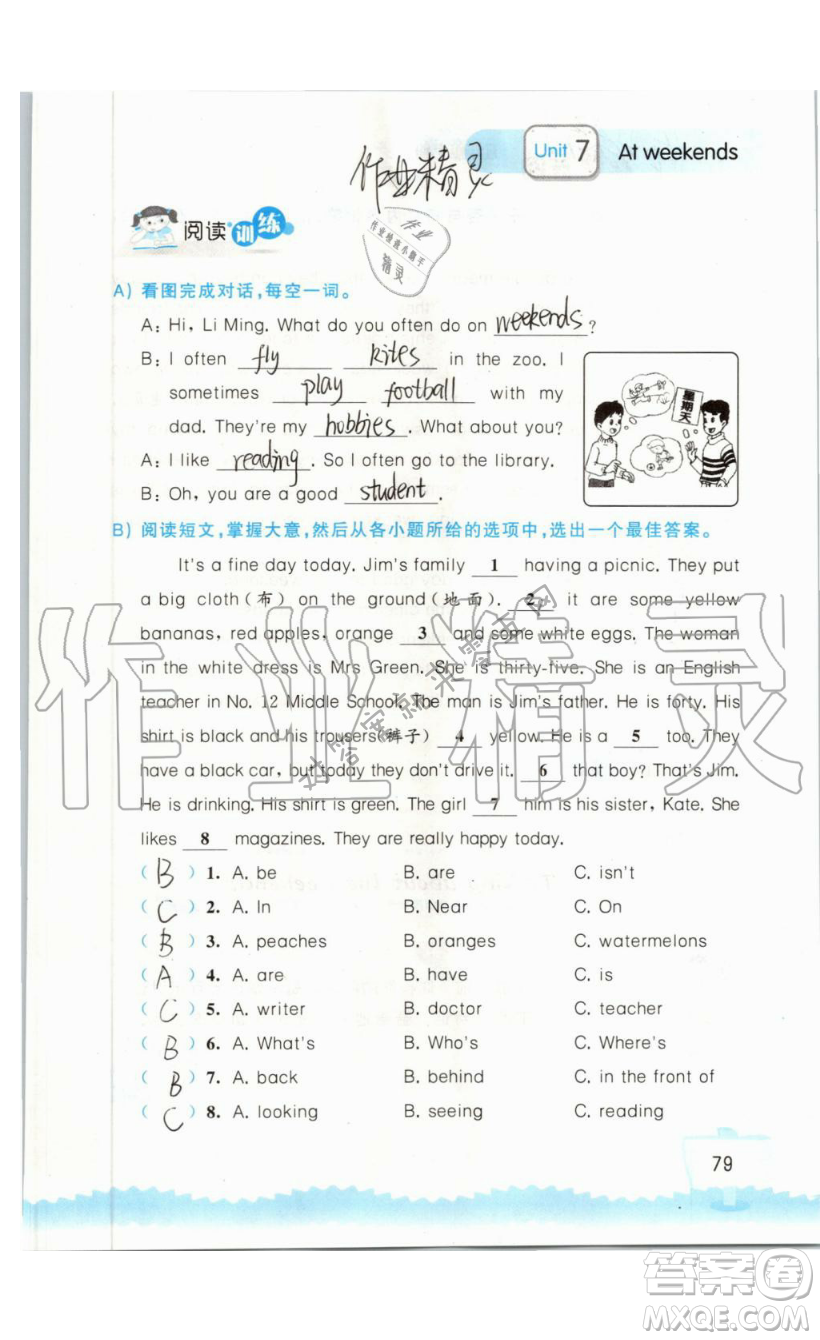 Unit 7 At weekends
作业精灵
阅读训练
作业
作业检查小助手
精灵
A) 看图完成对话,每空一词。
A: Hi, Li Ming. What do you often do on weekends?
B: I often fly kites in the zoo. I
sometimes play football with my
dad. They're my hobbies. What about you?
A: I like reading. So I often go to the library.
B: Oh, you are a good student.
星期天
B) 阅读短文,掌握大意,然后从各小题所给的选项中,选出一个最佳答案。
It's a fine day today. Jim's family 1 having a picnic. They put
a big cloth(布) on the ground(地面). 2 it are some yellow
bananas, red apples, orange 3 and some white eggs. The woman
in the white dress is Mrs Green. She is thirty-five. She is an English
teacher in No. 12 Middle School. The man is Jim's father. He is forty. His
shirt is black and his trousers(裤子) 4 yellow. He is a 5 too. They
have a black car, but today they don't drive it. 6 that boy? That's Jim.
He is drinking. His shirt is green. The girl 7 him is his sister, Kate. She
likes 8 magazines. They are really happy today.
( B ) 1. A. be B. are C. isn't
( C ) 2. A. In B. Near C. On
( B ) 3. A. peaches B. oranges C. watermelons
( A ) 4. A. are B. have C. is
( C ) 5. A. writer B. doctor C. teacher
( B ) 6. A. What's B. Who's C. Where's
( B ) 7. A. back B. behind C. in the front of
( C ) 8. A. looking B. seeing C. reading
79
作业精灵
答案圈
MXQE.COM